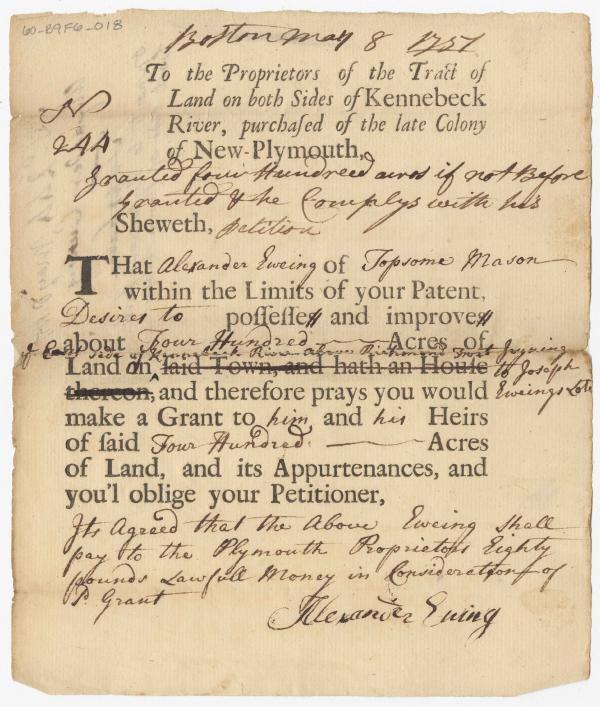 60-B9F6-018
Boston May 8 1757
To the Proprietors of the Tract of
Land on both Sides of Kennebeck
River, purchaſed of the late Colony
of New-Plymouth,
No
244
Granted four Hundreed acres if not Before
Granted & he Complys with his
Sheweth, petition
THat Alexander Eweing of Topsome Mason
within the Limits of your Patent,
Desires to poſſeſſes and improves
about Four Hundred Acres of
of East Side of Kennebeck River Above Richmond Fort Joyning
Land on ſaid Town, and hath an Houſe to Joseph
thereon, and therefore prays you would Eweings Lote
make a Grant to him and his Heirs
of ſaid Four Hundred Acres
of Land, and its Appurtenances, and
you'l oblige your Petitioner,
Its Agreed that the Above Eweing shall
pay to the Plymouth Proprietors Eighty
pounds Lawfull Money in Consideration of
Grant
Alexander Ewing